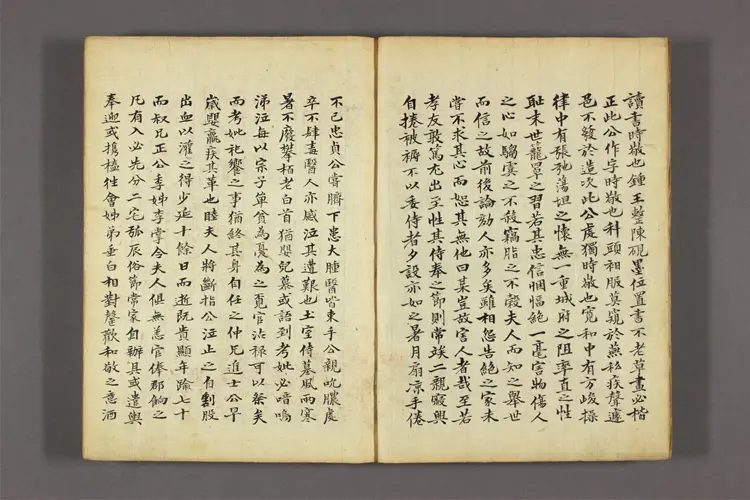 讀書時敬也鍾王整陳硯墨位置書不老草畫必楷
正此公作字時敬也科頭袒服莫窺於燕私疾聲遽
色不發於造次此公處獨時敬也寬和中有方峻操
律中有張弛蕩坦之懷無一重城府之阻率直之性
耻末世籠罩之習若其忠信悃愊絶一毫害物傷人
之心如騶虞之不殺竊脂之不穀夫人而知之舉世
而信之故前後論劾人亦多矣雖相怨告絶之家未
嘗不求其心而恕其無他曰某豈故害人者哉至若
孝友敦篤尤出至性其侍奉之節則常竢二親寢興
自捲被褥不以委侍者夕設亦如之暑月扇凉手倦
不已忠貞公嘗臍下患大腫醫皆束手公親吮膿處
卒不肆毒醫人亦感泣其遭艱也土室侍墓風雨寒
暑不廢攀栢老白首猶嬰兒慕或語到考妣必喑嗚
涕泣每以宗子單貧為憂為之覓官沾禄可以祭矣
而考妣祀饗之事猶終其身自任之仲兄進士公早
歲嬰羸疾其革也睦夫人將斷指公泣止之自割股
出血以灌之得少延十餘日而逝既貴顯年踰七十
而叔兄正公李姊李掌令夫人俱無恙官俸郡餉之
凡有入必先分二宅弧辰俗節常家自辦具或遣輿
奉迎或攜榼往會姊弟垂白相對馨歡和敬之意洒